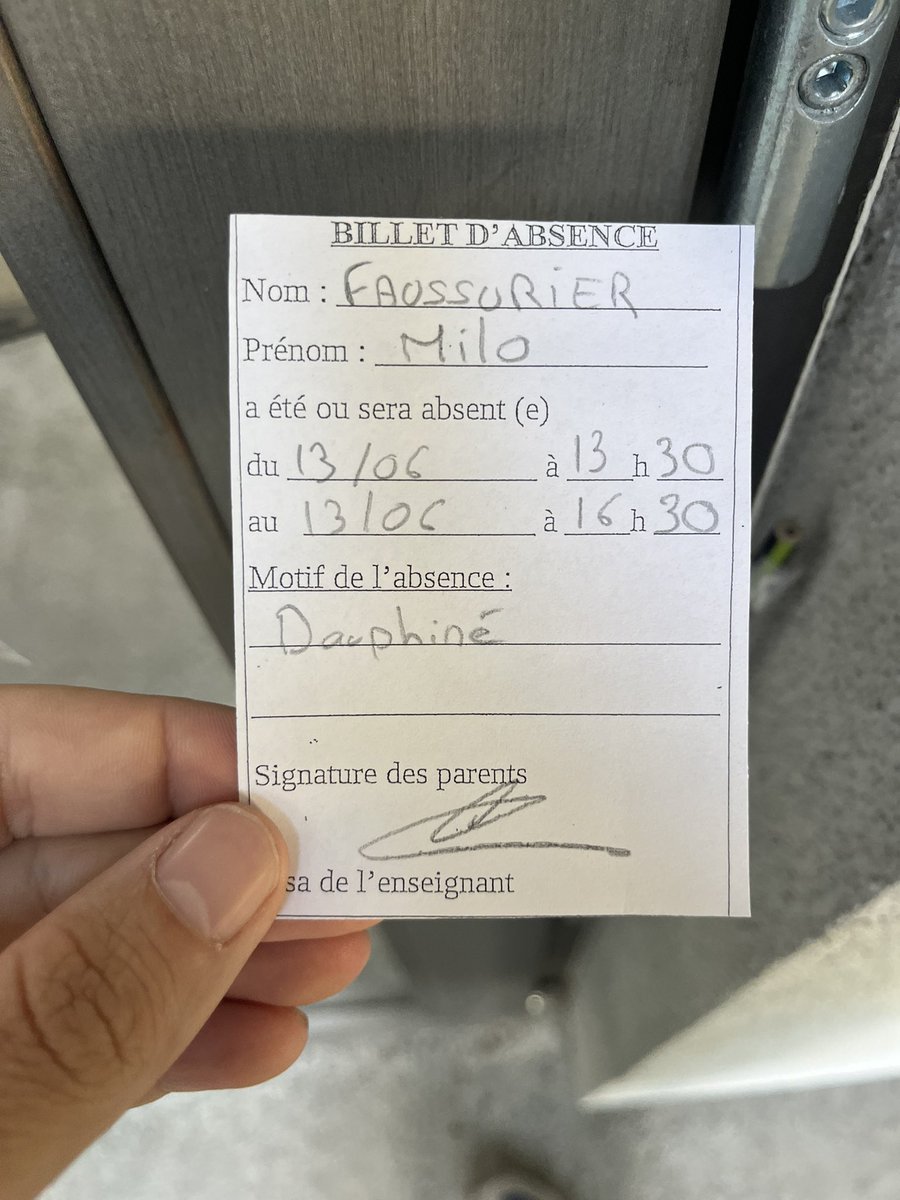 BILLET D'ABSENCE
Nom : FAUSSURIER
Prénom : Milo
a été ou sera absent (e)
du 13/06 à 13 h 30
au 13/06 à 16 h 30
Motif de l'absence :
Dauphiné
Signature des parents
sa de l'enseignant